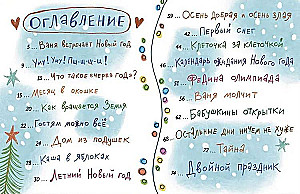 ОГЛАВЛЕНИЕ
5... Ваня встречает Новый год
9... Уиу! Уиу! Пи-и-и-и!
13... Что такое «через год»?
15... Месяц в окошке
20... Как вращается Земля
22... Гостям можно всё
24... Дом из подушек
28... Каша в яблоках
30... Летний Новый год
39... Осень добрая и осень злая
42... Первый снег
44... Клеточка за клеточкой
46... Календарь ожидания Нового года
52... Федина олимпиада
56... Ваня молчит
62... Бабушкины открытки
68... Остальные дни ничем не хуже
72... Тайна
Двойной праздник